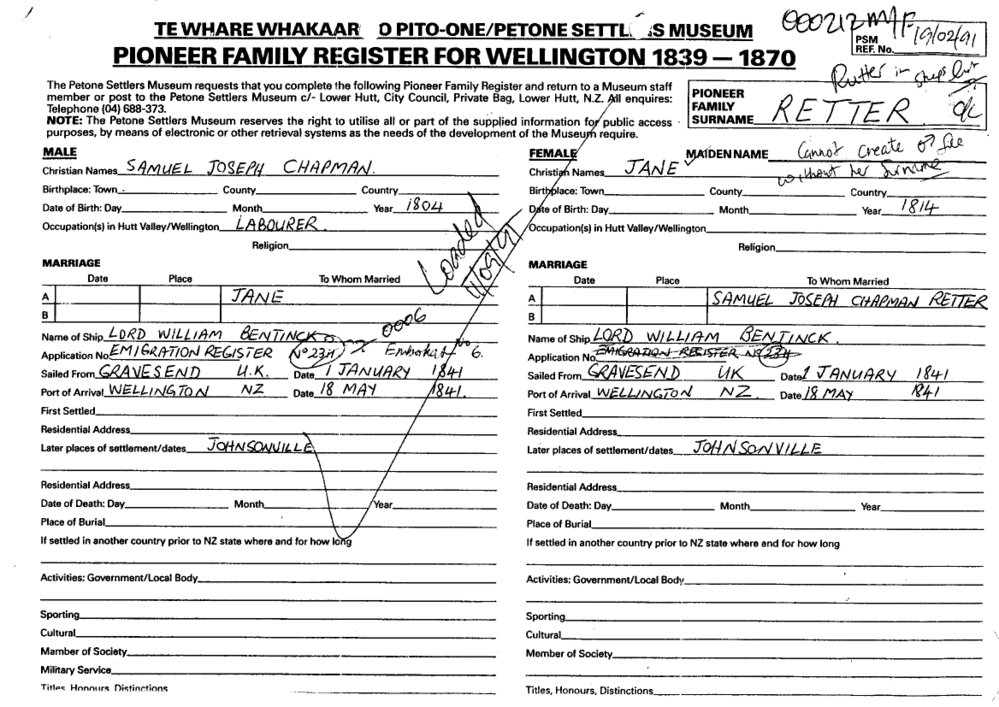 TE WHARE WHAKAAR O PITO-ONE/PETONE SETTL S MUSEUM
000212 MAF
PSM REF. No. 19/02/91
PIONEER FAMILY REGISTER FOR WELLINGTON 1839 — 1870
Rutter in ships list
The Petone Settlers Museum requests that you complete the following Pioneer Family Register and return to a Museum staff
member or post to the Petone Settlers Museum c/- Lower Hutt, City Council, Private Bag, Lower Hutt, N.Z. All enquires:
Telephone (04) 688-373.
NOTE: The Petone Settlers Museum reserves the right to utilise all or part of the supplied information for public access
purposes, by means of electronic or other retrieval systems as the needs of the development of the Museum require.
PIONEER FAMILY SURNAME RETTER
MALE
Christian Names SAMUEL JOSEPH CHAPMAN.
Birthplace: Town County Country
Date of Birth: Day Month Year 1804
Occupation(s) in Hutt Valley/Wellington LABOURER
Religion
Loaded
MARRIAGE
Date Place To Whom Married
A JANE
B
0006
Name of Ship LORD WILLIAM BENTINCK
Application No. EMIGRATION REGISTER No 2311 Embarkat No 6.
Sailed From GRAVESEND U.K. Date 1 JANUARY 1841
Port of Arrival WELLINGTON NZ Date 18 MAY 1841.
First Settled
Residential Address
Later places of settlement/dates JOHNSONVILLE
Residential Address
Date of Death: Day Month Year
Place of Burial
If settled in another country prior to NZ state where and for how long
Activities: Government/Local Body
Sporting
Cultural
Mamber of Society
Military Service
Titles, Honours, Distinctions
FEMALE MAIDEN NAME Cannot create file
without her surname
Christian Names JANE
Birthplace: Town County Country
Date of Birth: Day Month Year 1814
Occupation(s) in Hutt Valley/Wellington
Religion
MARRIAGE
Date Place To Whom Married
A SAMUEL JOSEPH CHAPMAN RETTER
B
Name of Ship LORD WILLIAM BENTINCK.
Application No. EMIGRATION REGISTER No
Sailed From GRAVESEND UK Date 1 JANUARY 1841
Port of Arrival WELLINGTON NZ Date 18 MAY 1841
First Settled
Residential Address
Later places of settlement/dates JOHNSONVILLE
Residential Address
Date of Death: Day Month Year
Place of Burial
If settled in another country prior to NZ state where and for how long
Activities: Government/Local Body
Sporting
Cultural
Member of Society
Titles, Honours, Distinctions